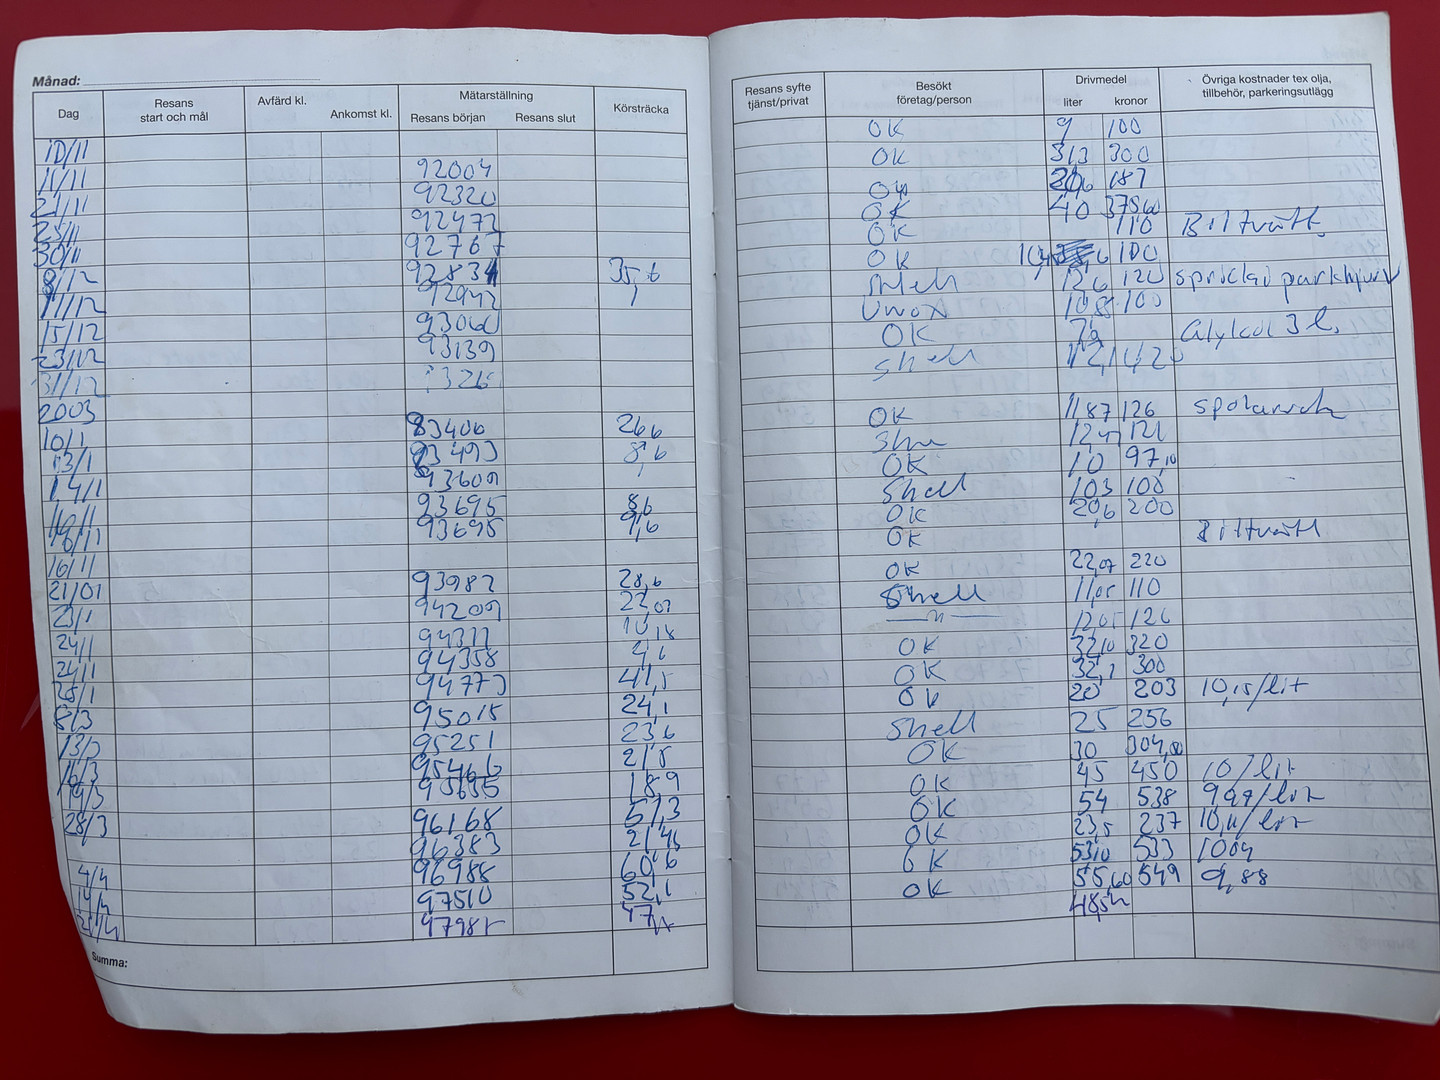 Månad:
Dag
Resans start och mål
Avfärd kl.
Ankomst kl.
Mätarställning
Resans början
Resans slut
Körsträcka
10/11
11/11 92004
21/11 92320
25/11 92472
30/11 92767
8/12 92834 35,6
11/12 92942
15/12 93060
23/12 93139
31/12
2003
10/1 93406 26,6
13/1 93493 8,6
14/1 93609
93695 8,6
93695 9,6
16/11
21/01 93982 28,6
23/1 94209 22,07
24/1 94311 10,18
24/1 94358 4,6
25/1 94773 41,5
8/3 95015 24,1
13/3 95251 23,6
16/3 95466 21,5
19/3 95655 18,9
28/3 96168 51,3
96383 21,45
4/4 96988 60,6
14/4 97510 52,1
97981 47,1
Summa:
Resans syfte tjänst/privat
Besökt företag/person
Drivmedel
liter
kronor
Övriga kostnader tex olja, tillbehör, parkeringsutlägg
OK 9 100
OK 31,3 300
OK 20,6 187
OK 40 375,60
OK 110 Biltvätt
OK 10,4 100
Shell 12,6 120
Unox 10,8 100
OK 79 Glykol 3 l.
Shell
OK 11,87 126 spolarvätk
Shell 121
OK 10 97,10
Shell 10,3 100
OK 20,6 200
OK Biltvätt
OK 22,07 220
Shell 11,05 110
—"— 12,05 126
OK 32,10 320
OK 32,1 300
OK 20 203 10,15/lit
Shell 25 256
OK 30 304,00
OK 45 450 10/lit
OK 54 538 9,97/lit
OK 23,5 237 10,11/lit
OK 53,10 533 1004
OK 55,60 549 9,88
48,54